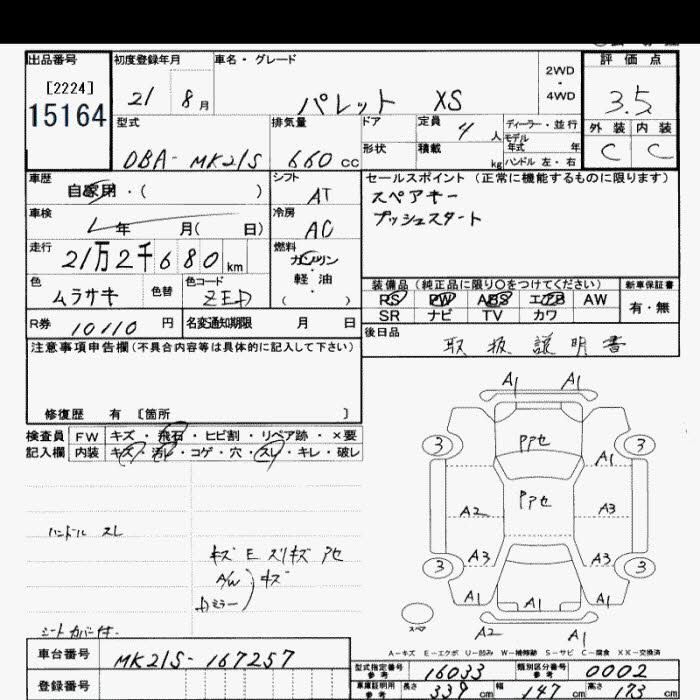 出品番号
[2224]
15164
初度登録年月
21 8月
車名・グレード
パレット XS
2WD
・
4WD
評価点
3.5
外装 内装
C C
型式
DBA-MK21S
排気量
660 cc
ドア
形状
定員
4 人
積載
kg
ディーラー・並行
モデル
年式 年
ハンドル 左・右
車歴
自家用・( )
シフト
AT
車検
年 月( 日)
冷房
AC
走行
21万2千680 km
燃料
ガソリン
・
軽油
( )
色
ムラサキ
色替
色コード
ZED
R券
10110 円
名変通知期限 月 日
セールスポイント (正常に機能するものに限ります)
スペアキー
プッシュスタート
装備品 (純正品に限り○をつけてください)
PS PW ABS エアB AW
SR ナビ TV カワ
新車保証書
有・無
後日品
取扱説明書
注意事項申告欄(不具合内容等は具体的に記入して下さい)
修復歴 有 〔箇所 〕
検査員
記入欄
FW キズ・飛石・ヒビ割・リペア跡・×要
内装 キズ・汚レ・コゲ・穴・スレ・キレ・破レ
ハンドル スレ
キズ E スリキズ アセ
A/W キズ
ミラー
シートカバー付
A1 A1
3 PPセ 3
A1
PPセ
A2 A3
A3 A3
3 3
A1 A1 A1
スペア
A2 A1
A-キズ E-エクボ U-凹み W-補修跡 S-サビ C-腐食 XX-交換済
車台番号
MK21S-167257
登録番号
型式指定番号
参考
16033
類別区分番号
参考
0002
車庫証明用
参考
長さ 339 cm 幅 147 cm 高さ 173 cm